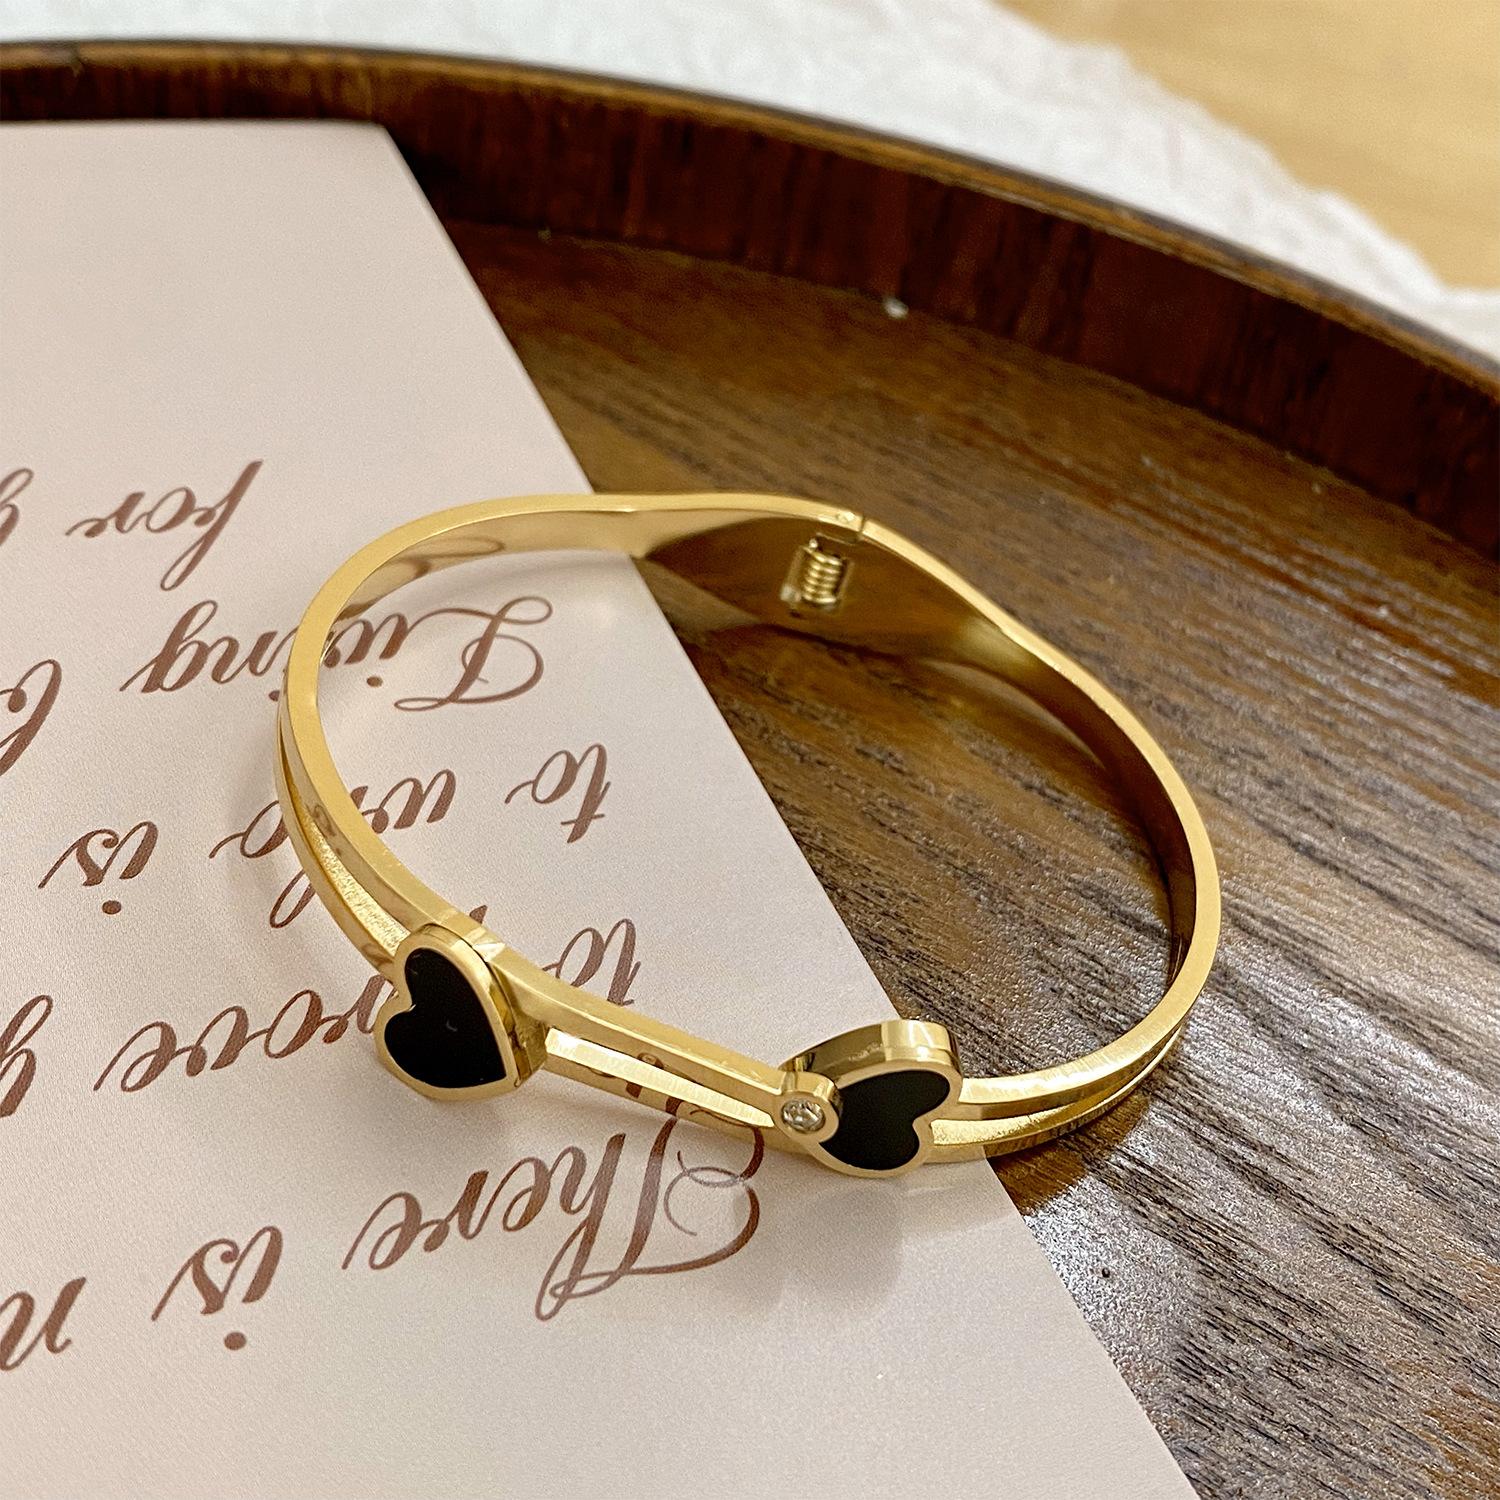 There is
to prove
to who is
Living
for